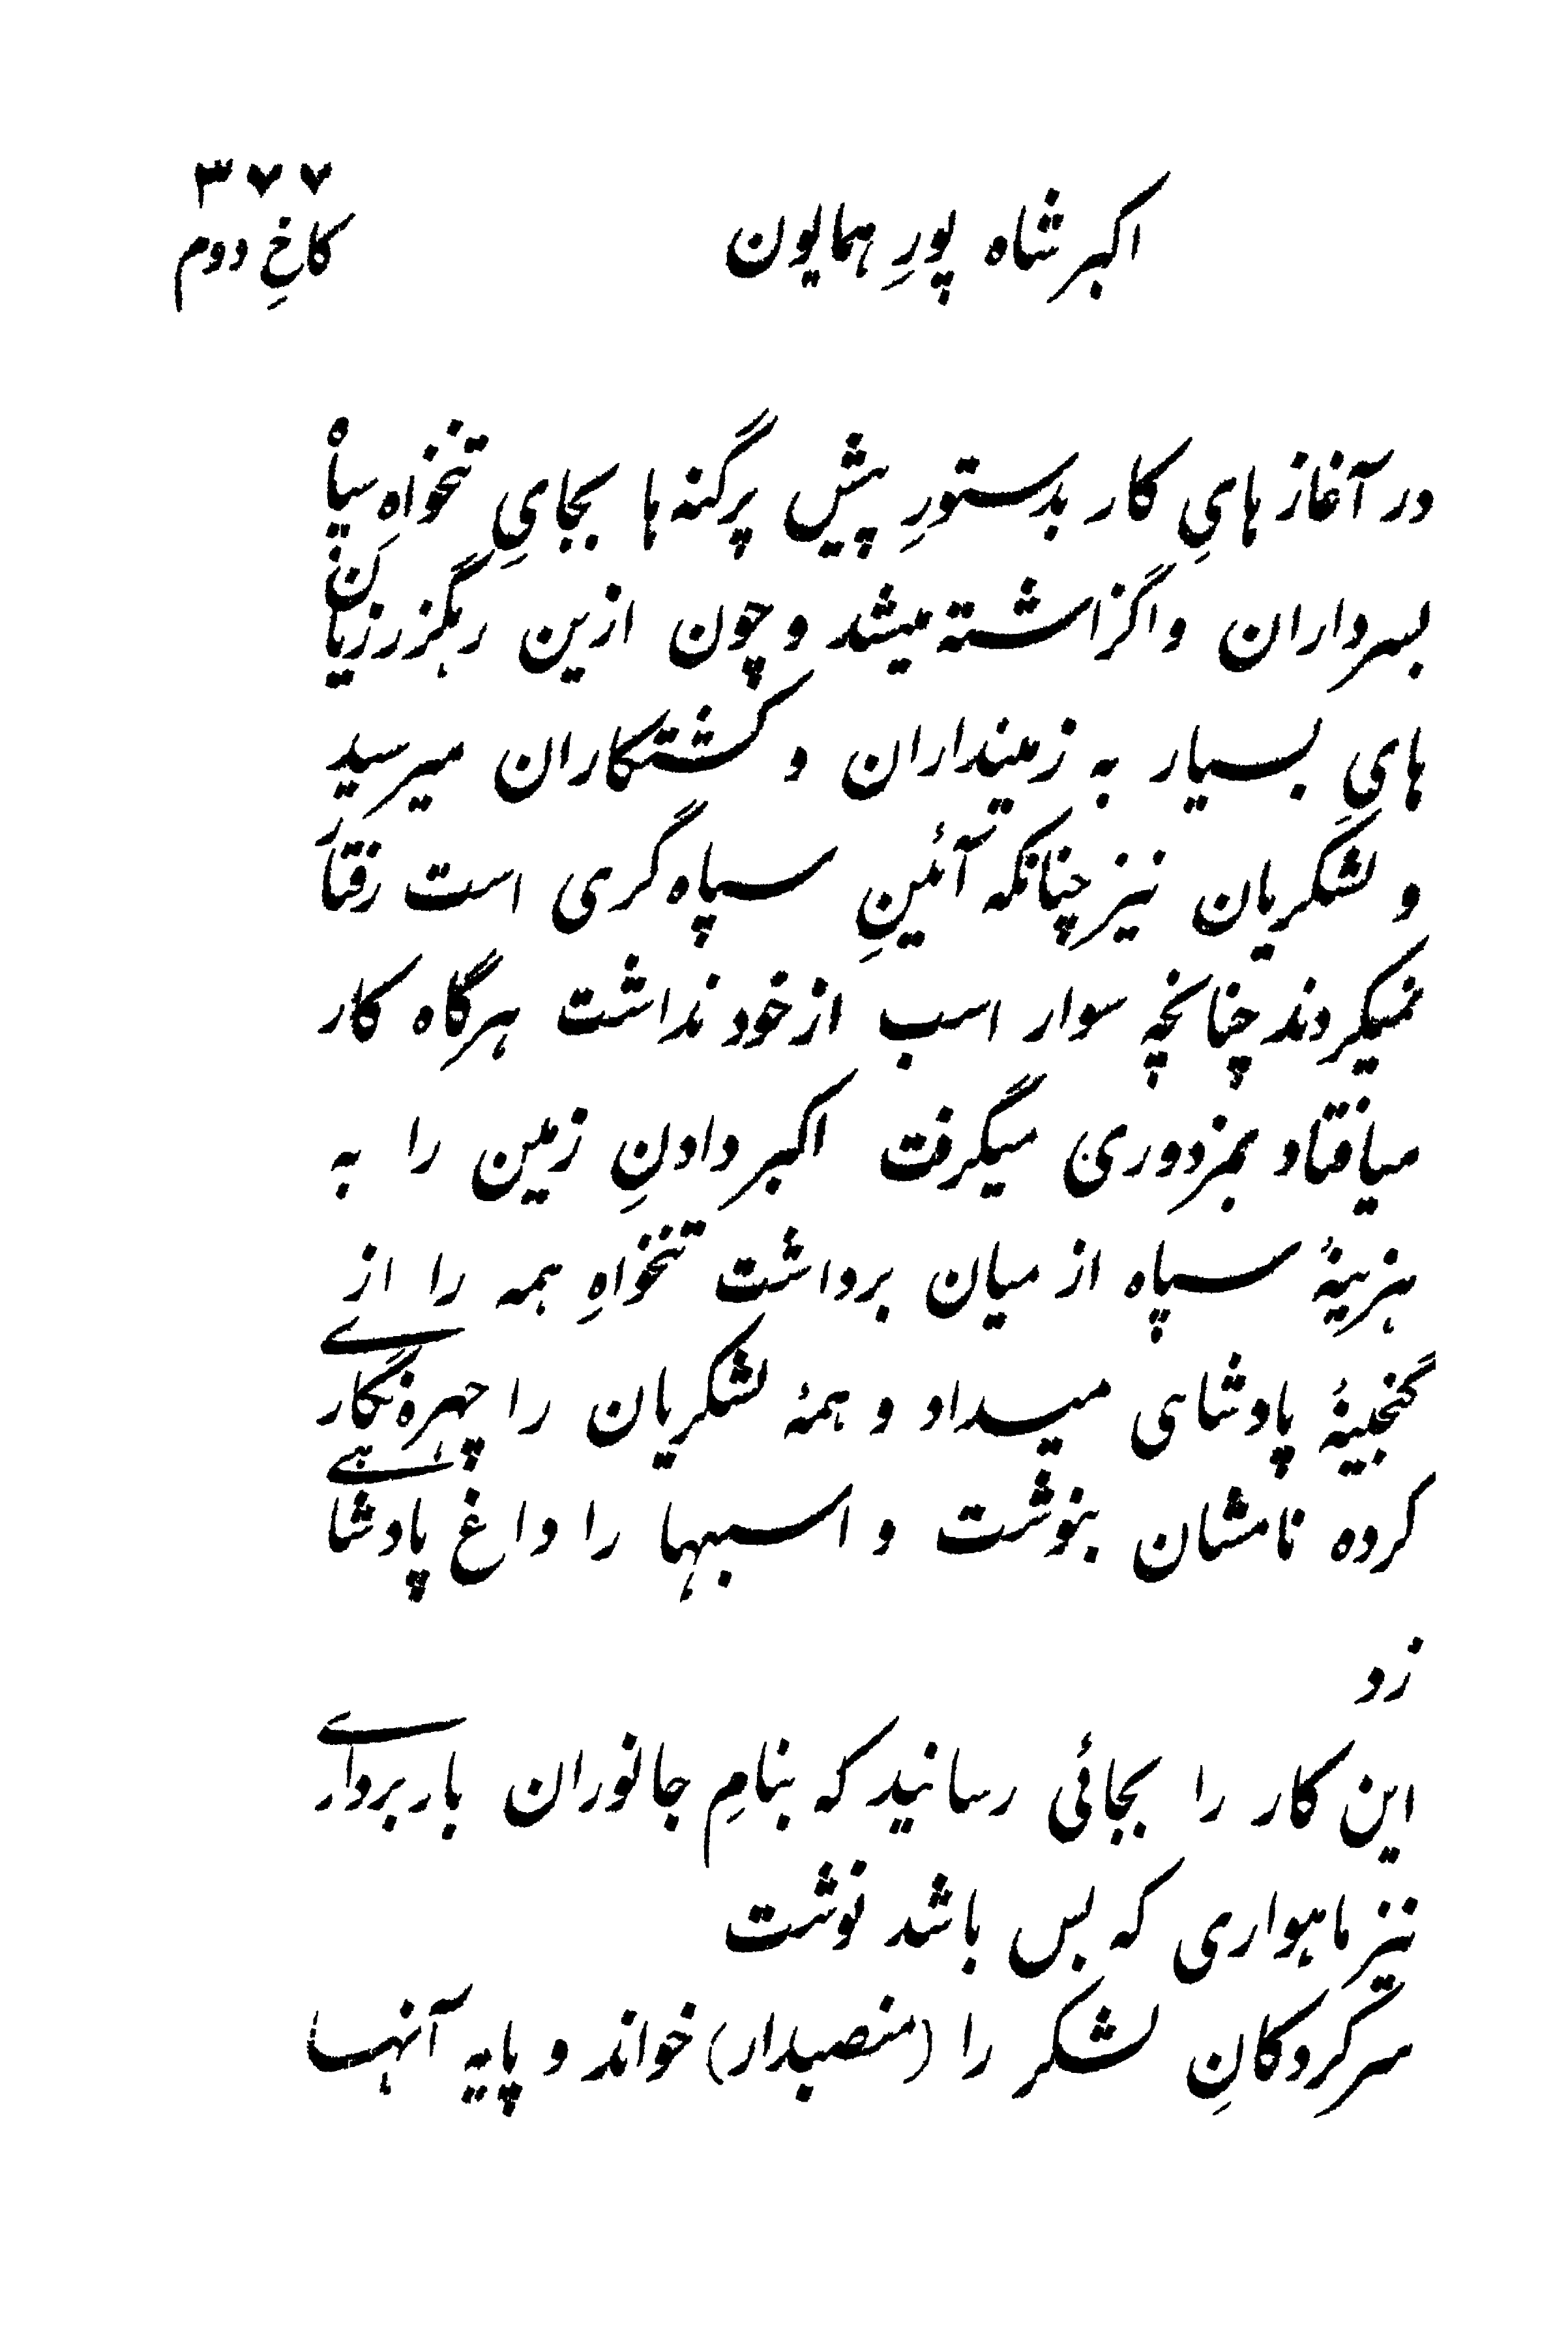 ۳۷۷
اکبر شاه پورِ همایون
کاخِ دوم
در آغاز هایِ کار بدستورِ پیش پرگنه ها بجایِ تنخواهِ سپاه
بسرداران واگزاشته میشد و چون ازین رهگزر زیان
هایِ بسیار به زمینداران و کشتکاران میرسید
و لشکریان نیز چنانکه آئینِ سپاه گری است رفتار
نمیکردند چنانچه سوار اسب از خود نداشت هرگاه کار
میافتاد بمزدوری میگرفت اکبر دادنِ زمین را به
هزینهٔ سپاه از میان برداشت تنخواهِ همه را از
گنجینهٔ پادشاهی میداد و همهٔ لشکریان را چهره نگاری
کرده نامشان بنوشت و اسبها را داغ پادشاهی
زد
این کار را بجائی رسانید که بنامِ جانوران باربرداری
نیز ماهواری که بس باشد نوشت
سرکردکانِ لشکر را (منصبدار) خواند و پایه آنها